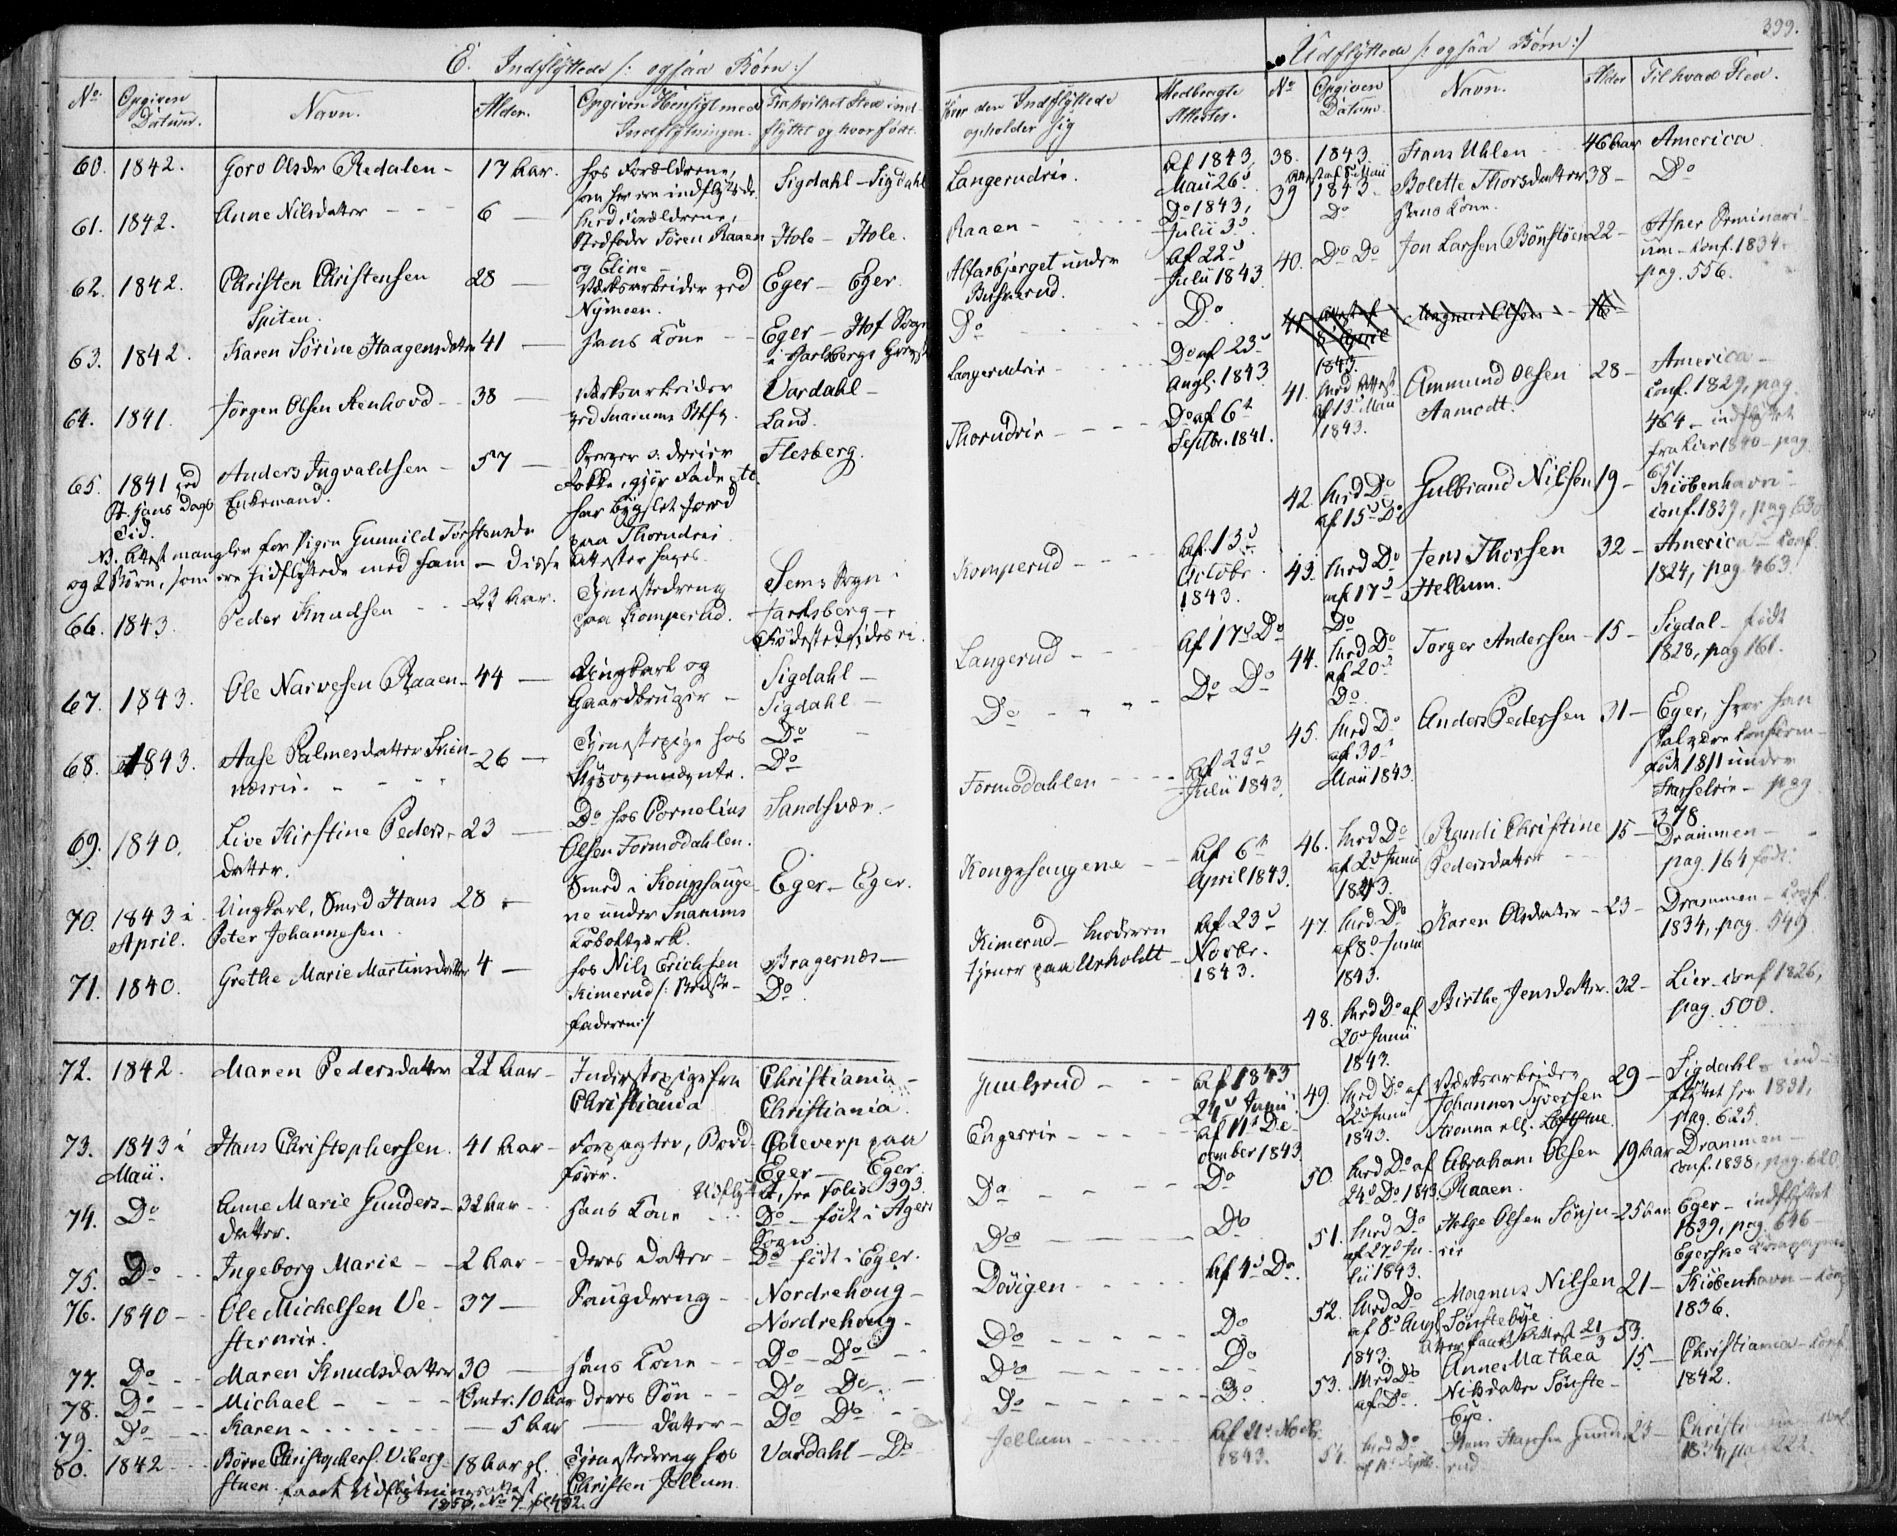 E. Indflyttede /: ogsaa Børn :/
No
Opgiven Datum.
Navn.
Alder.
Opgiven Hensigt med Indflytningen.
Fra hvilket Sted indflyttet og hvor født.
60. 1842. Goro Olsdr Redalen - 17 Aar. hos Forældrene, Sigdahl - Sigdahl
61. 1842. Anne Nilsdatter - - - 6 - med Forældrene,
Stedfader Søren Raaen Hole - Hole.
og Eline
62. 1842. Christen Christensen 28 - Værksarbeider ved Eger - Eger.
Spiten. Nymoen.
63. 1842. Karen Sørine Haagensdatter 41 - hans Kone - - Eger - Hof Sogn
i Jarlsbergs Grevsk
64. 1841. Jørgen Olsen Stenhovd - 38 - Værksarbeider Vardahl -
ved Snarums Land.
65. 1841 ved Anders Ingvaldsen - 57 - Flesberg.
St. Hans Dags Enkemand.
Tid. har bygslet Jord
paa Thorudrei
NB. Attest mangler for Pigen Gunnild Torstensdr
og 2 Børn, som ere hidflyttede med ham - disse Attester haves.
66. 1843. Peder Knudsen - - 23 Aar. Tjenestedreng Sems Sogn i
paa Komperud. Jarlsberg -
Fødested
67. 1843. Ole Narvesen Raaen - 44 - Ungkarl og Sigdahl -
Gaardbruger - Sigdahl -
68. 1843. Aase Palmesdatter Skin- 26 - Tjenestepige hos Do
næsrie. Do
69. 1840. Live Kirstine Peders- 23 - Do hos Cornelius Sandsvær -
datter. Olsen Formodahlen.
70. 1843 i Ungkarl, Smed Hans 28 - Smed i Kongshauge- Eger - Eger.
April. Peter Johannesen. ne under Snarums
Koboltværk.
71. 1840. Grethe Marie Martinsdatter 4 - hos Nils Erichsen Bragernæs -
Kimerud /: Stedfa- Do
faderen :/
72. 1842. Maren Pedersdatter 22 Aar - Inderstepige fra Christiania -
Christiania Christiania.
73. 1843 i Hans Christophersen. 41 Aar - Forpagter, Brød- Coleverp paa
Maii. fører. Eger - Eger.
Udflyttet, see Folio 393.
74. Do Anne Marie Gunders- 32 Aar - hans Kone - - Do - født i Agers
datter. Sogn
75. Do - - Ingeborg Marie - - 2 Aar - deres Datter - Do født i Eger.
76. 1840 - - Ole Michelsen Ve- 37 - Saugdreng - Nordrehoug -
sternrie. Nordrehoug -
77. Do - - Maren Knudsdatter 30 - hans Kone - - Do - Do
78. Do - - Michael - - - - Omtr. 10 Aar deres Søn - - Do Do
79. Do - - Karen - - - - - 5 Aar - Datter - Do Do
80. 1842 - - Børre Christophers. Viberg- 18 Aar gl. Tjenestedreng hos Vardahl - Do
stuen. faaet Udflytningsattest Christen Jellum.
1850, No 7
399.
Udflyttede /: ogsaa Børn :/
Hvor den Indflyttede opholder sig
Medbragte Attester.
No
Opgiven Datum.
Navn.
Alder
Til hvad Sted.
Langerudrie. Af 1843, Maii 26d
38. 1843. Hans Uhlen - 46 Aar America
39 1843. Bolette Thorsdatter 38 - Do
Do hans Kone.
Raaen - - - Do 1843, Julii 3d
Alfarbjerget under Af 22d
Buskerud. Julii 1843
40. Do Do Jon Larsen Bønsløien 22 - Asker Seminari-
um - Conf. 1834.
pag. 556.
Do - - - Do.
Langerudrie - - - Do af 23d
Augl. 1843
41. med Attest Ammund Olsen 28 - America -
af 13d Maii Aamodt. Conf. 1829, pag.
1843. 464 - indflyttet
fra Lier 1840 - pag.
651.
Thorudrie - - - Do af 6te
Septbr. 1841.
42. med Do Gulbrand Nilsen 19 - Kiøbenhavn -
af 15d Do Conf. 1839, pag 630
Komperud - - Af. 13d
Octobr.
1843.
43. med Do Jens Thorsen 32 - America - Conf.
af 17d Hellum. 1824, pag. 463.
Do
Langerud - - Af 17d Do
44. med Do Torger Andersen - 15 - Sigdal - født
af 20d 1828, pag 161.
Do
Do - - - Do Do
45. med Do Anders Pedersen 31 - Eger, hvor han
af 30d
Maii 1843. født 1811 under
Hasselrie - pag
378
Formodahlen - - - Af 23d
Julii 1843.
46. med Do Randi Christine 15 - Drammen -
af 2d Junii Pedersdatter pag. 164 født.
1843.
Kongshaugene - - Af 6te
April 1843.
47. med Do Karen Olsdatter - 23 - Drammen - Conf
af 8d Junii 1834, pag. 549
1843.
Kimerud - Moderen Af 23d
tjener paa Asholdt - Novbr.
1843.
48. med Do af Birthe Jensdatter. 32 - Lier - Conf 1826,
20d Junii pag. 500.
1843.
Juulsrud - - - Af 1843
24d Junii
49. med Do af Værksarbeider 29 - Sigdahl - ind-
22d Junii Johannes Syversen flyttet her 1831,
1843. pag. 625.
Engerrie - - - - Af 11te De-
cember 1843
50. med Do af Abraham Olsen 19 Aar Drammen -
24d Do 1843. Raaen. Conf. 1838, pag. 620
Do - - - - Do
51. med Do Helge Olsen Sønju- 25 Aar Eger - indflyttet
af 27d Ju- rie 1839, pag. 646 -
lii 1843. Egerske Compagnie
Do - - - Do
Døvigen - - - - Af 4d Do.
52. med Do Magnus Nilsen 21 - Kiøbenhavn - Conf
af 8d Augl. Sønstebye 1836.
1843.
Do - - - - Do
53. med Do Anne Mathea 15 - Christiania - Conf.
af Do. Nilsdatter Sønste- 1842.
bye.
Do - - - - Do
Do - - - - Do
Jellum - - - - Af 21d Novbr.
1843.
54. med Do Hans Hansen 23 -